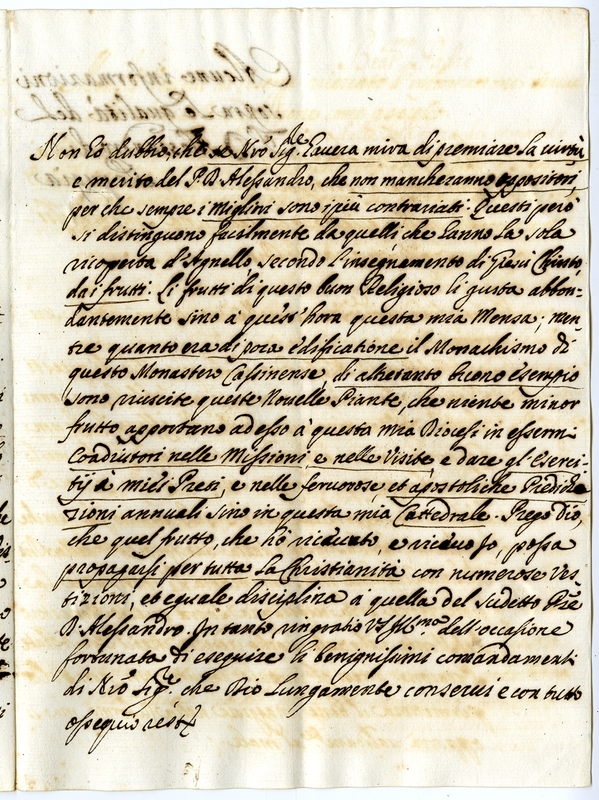 Non hò dubbio, che se Nrõ Sig.re havera mira di premiare la virtù
e merito del P. D. Alessandro, che non mancheranno oppositori
per che sempre i Migliori sono i più contrariati. Questi però
si distinguono facilmente da quelli che hanno la sola
ricoperta d'Agnello, secondo l'insegnamento di Giesù Christo,
da i frutti. Li frutti di questo buon Religioso li gusta abbon-
dantemente sino a quest'hora questa mia Mensa; men-
tre quanto era di poca edificatione il Monachismo di
questo Monastero Cassinense, di altretanto buono esempio
sono riuscite queste Novelle Piante, che niente minor
frutto apportano adesso à questa mia Diocesi in essermi
Coadiutori nelle Missioni, e nelle Visite, e dare gl'Eserci-
tij à miei Preti, e nelle fervorose, et apostoliche Prediche
zioni annuali sino in questa mia Cattedrale. Prego Dio,
che quel frutto, che hò ricevuto, e ricevo Jo, possa
propagarsi per tutta la Christianità con numerose Ves-
tizioni, et eguale disciplina à quella del sudetto Prẽ
D. Alessandro. In tanto ringratio VS Ill.ma dell'occasione
fortunata di eseguire li benignissimi comandamenti
di Nrõ Sig.re che Dio lungamente conservi e con tutto
ossequio resto